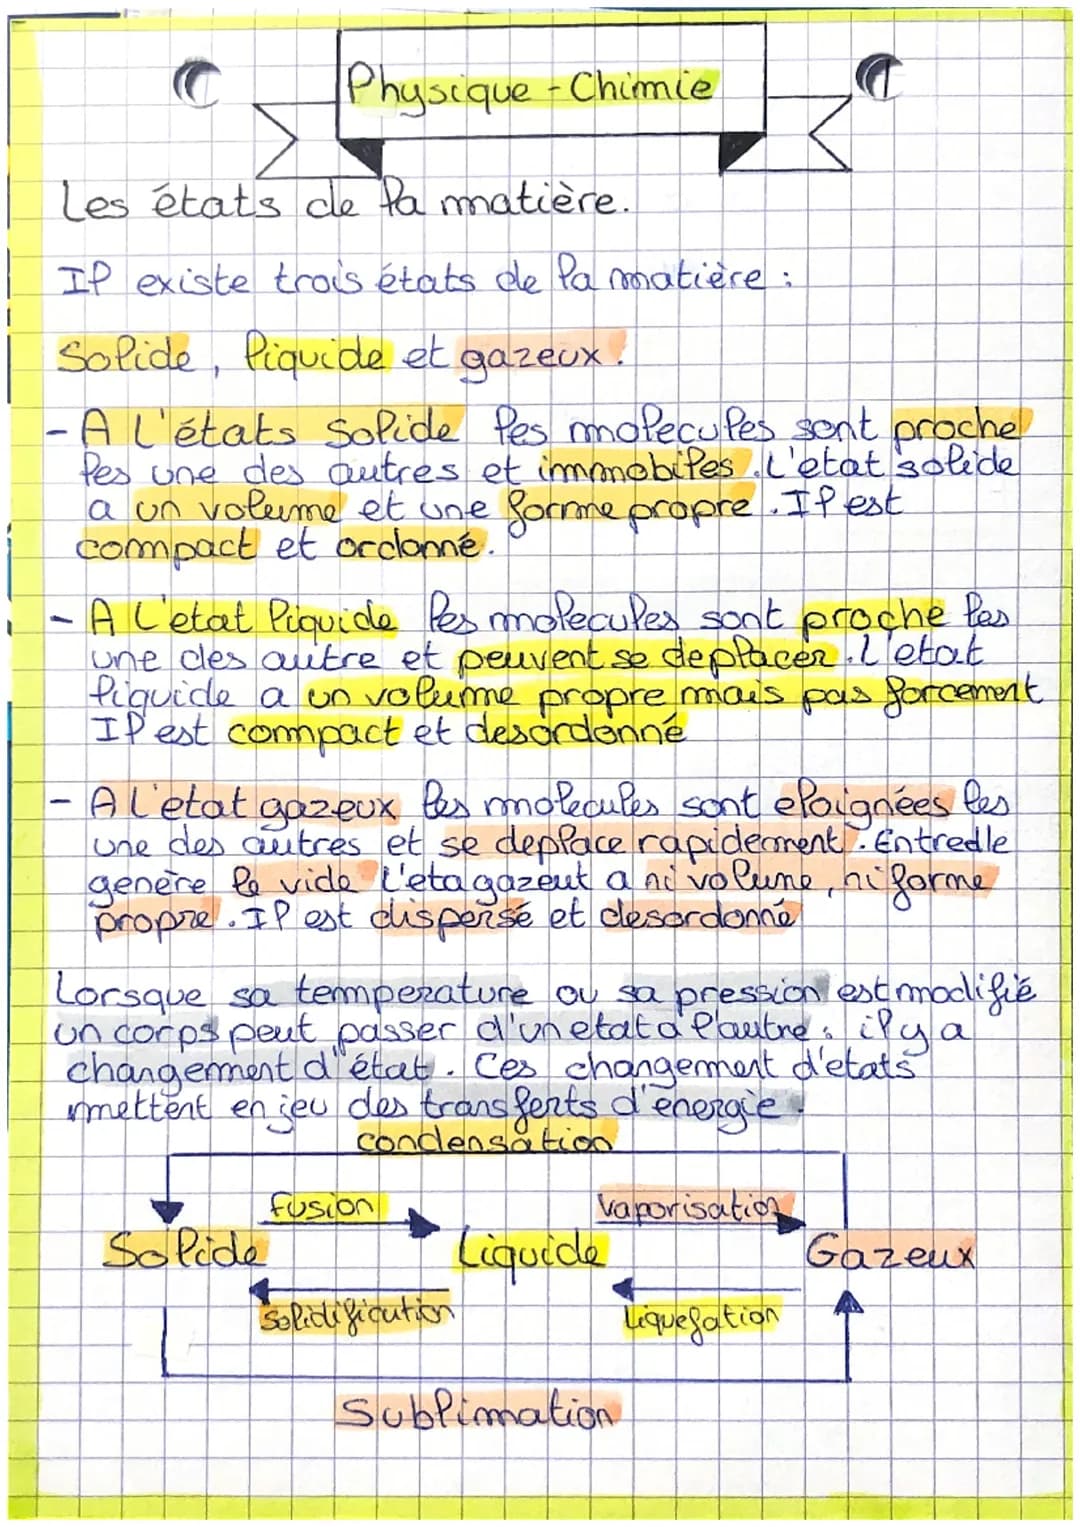 Physique - Chimie
Les états de la matière.
Il existe trois états de la matière :
Solide, liquide et gazeux.
- A L'états solide les molecules sont proche
les une des autres et immobiles. L'etat solide
a un volume et une forme propre. Il est
compact et ordonné.
- A L'etat liquide les molecules sont proche les
une des autre et peuvent se deplacer. L'etat
liquide a un volume propre mais pas forcement
Il est compact et desordonné
- A l'etat gazeux les molecules sont eloignées les
une des autres et se deplace rapidement. Entredle
genère le vide L'eta gazeut a ni volume, ni forme
propre. Il est dispersé et desordonné
Lorsque sa temperature ou sa pression est modifié
un corps peut passer d'un etat a l'autre : il y a
changement d'état. Ces changement d'etats
mettent en jeu des transferts d'énergie.
condensation
fusion
vaporisation
Solide
Liquide
Gazeux
Solidification
Liquefation
Sublimation